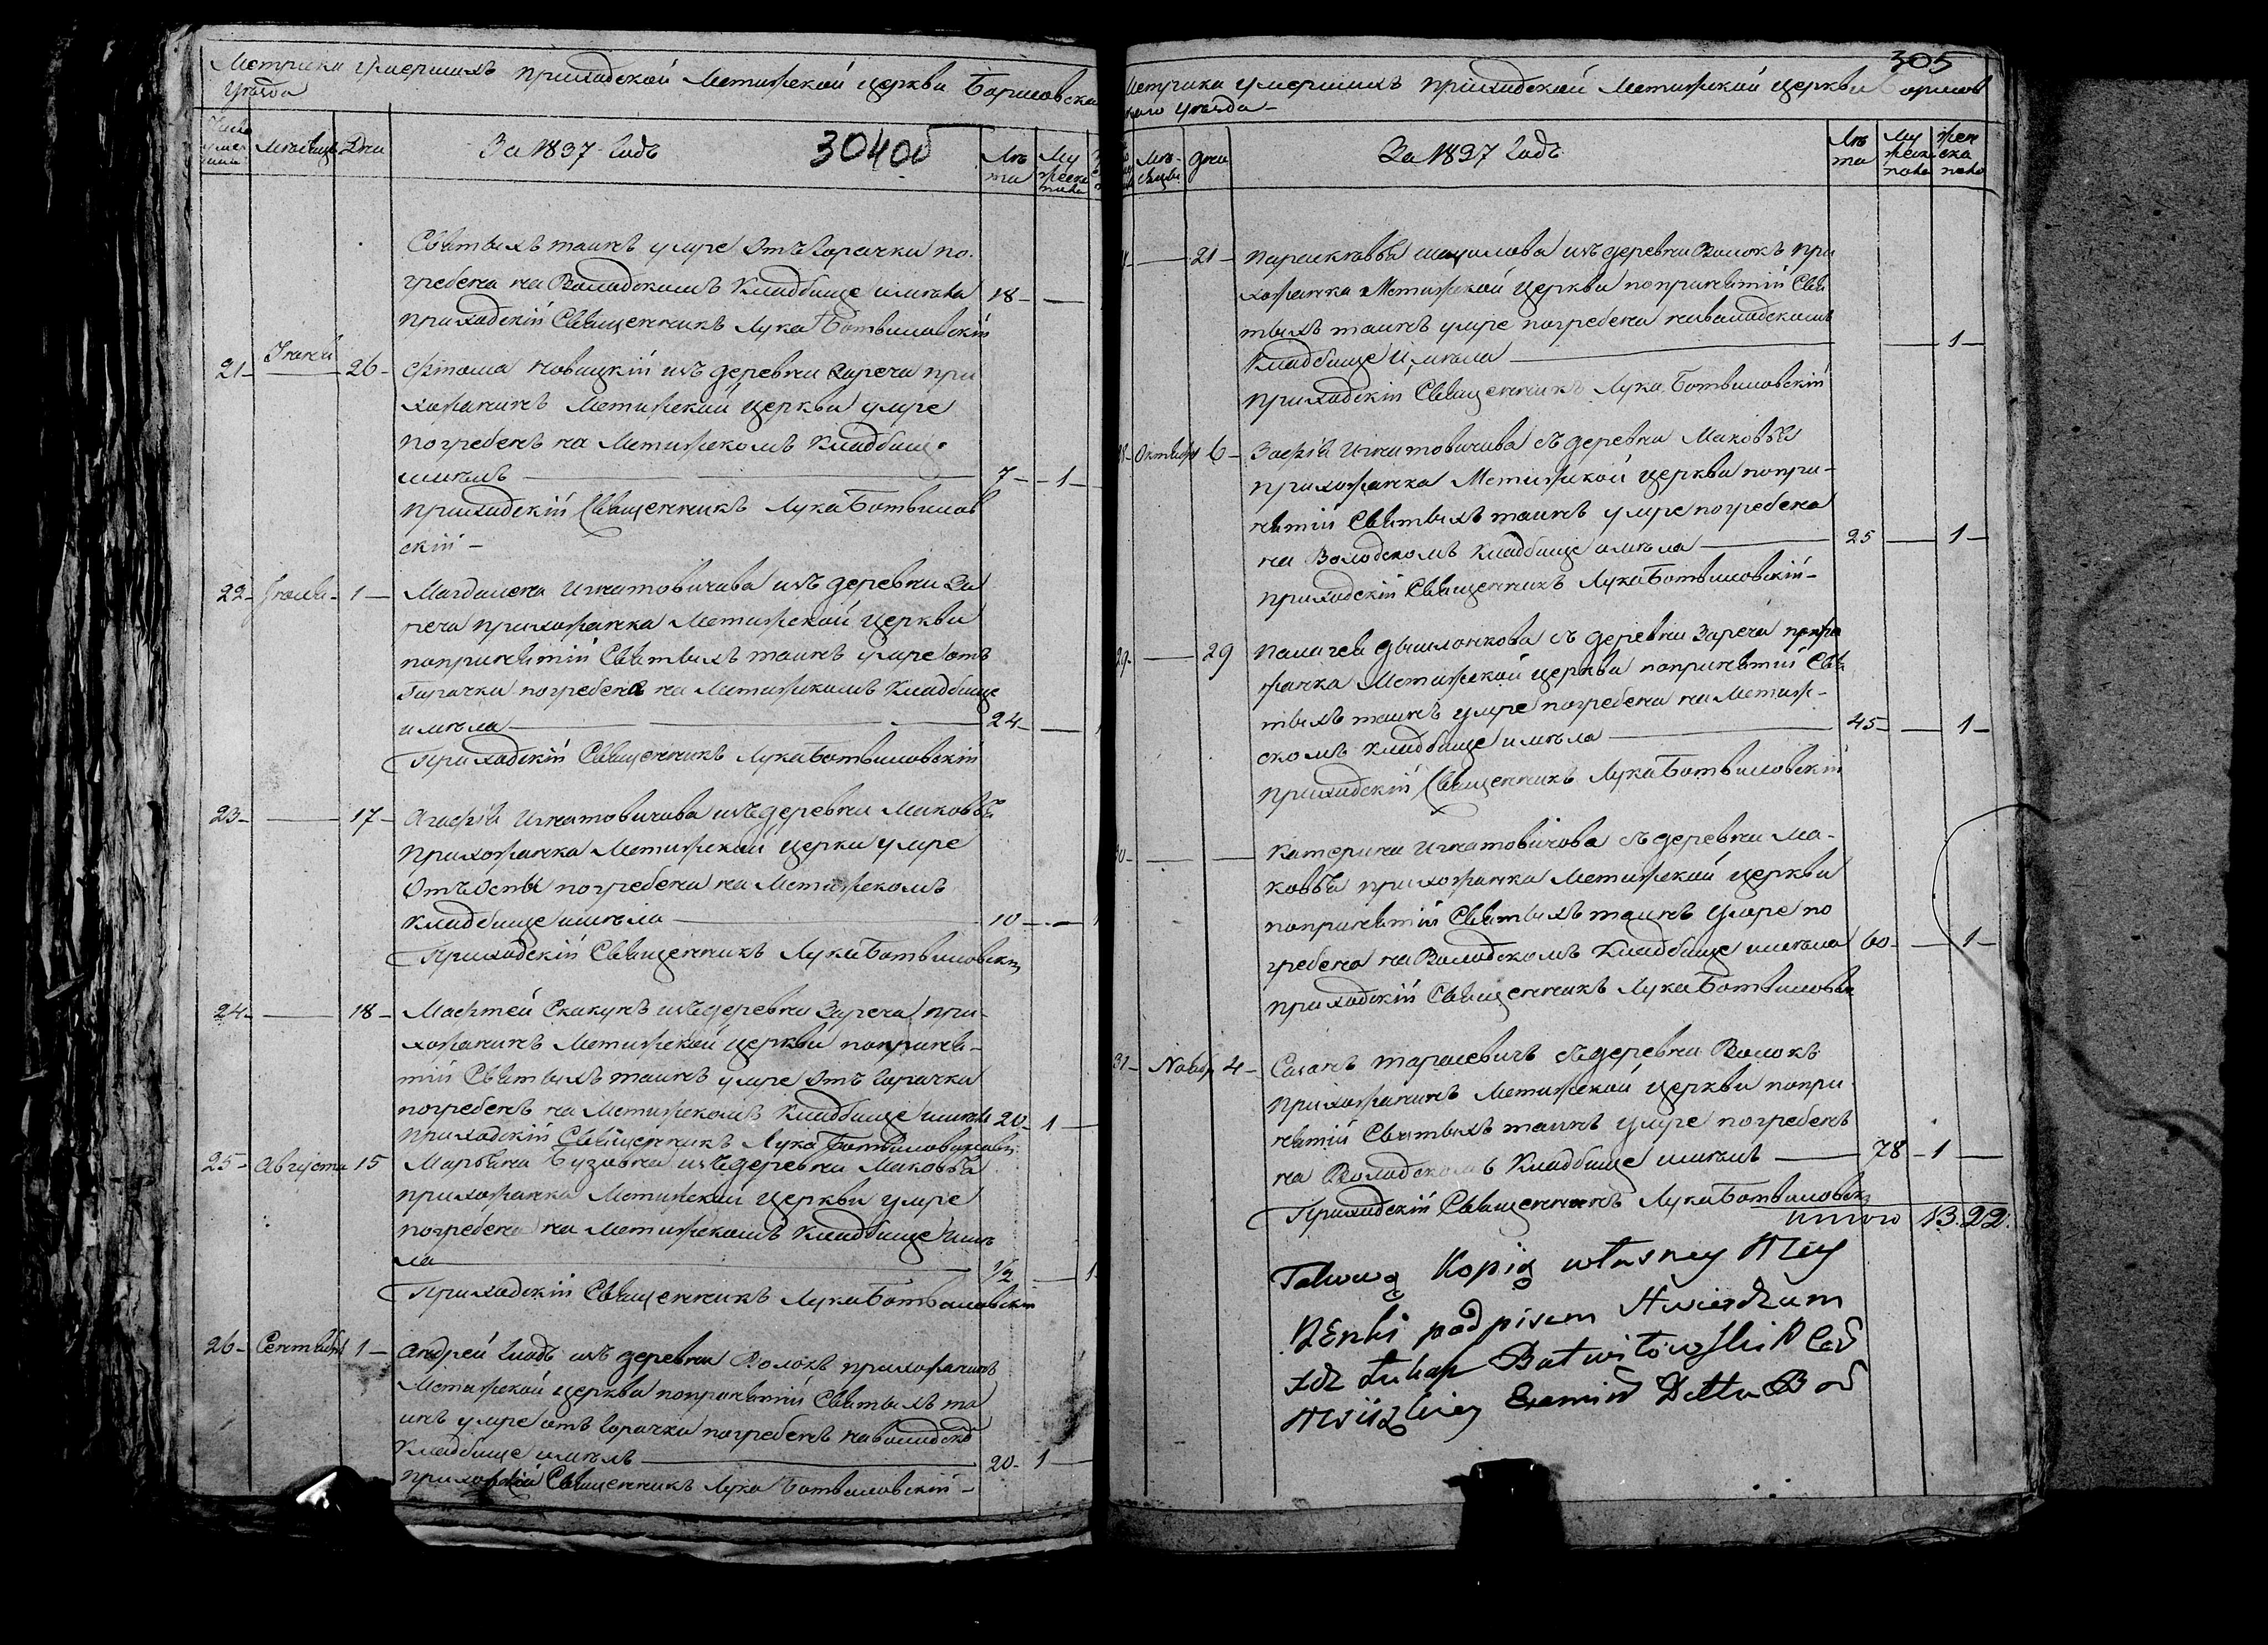 Метрика умершихъ приходской Метижской церкви Борисовска
Уѣзда
Число умер
Мѣсяцъ
Дни
За 1837 Годъ
304об
Лѣ
та
Му
жеска
пола
Святыхъ таинъ умре Отъ Горачки по
гребена на Володскомъ Кладбище имѣла 18 —
приходскій Священникъ Лука Ботвиловскій
21 — 26 — Новицкій изъ деревни Зареча при
хожанинъ Метижской церкви умре
погребенъ на Метижскомъ Кладбище
имѣлъ 7 — 1 —
приходскій Священникъ Лука Ботвилов
скій —
22 — 1 — Магдалена Игнатовичава изъ деревни За
реча прихожанка Метижской церкви
попринятіи Святыхъ таинъ умре отъ
Горачки погребена на Метижскомъ Кладбище
имѣла 24 — 1
Приходскій Священникъ Лука Ботвиловскій
23 — 17 — Агафія Игнатовичава изъ деревни Маковья
прихожанка Метижской церкви умре
Отъ Оспы погребена на Метижскомъ
Кладбище имѣла 10 — 1
Приходскій Священникъ Лука Ботвиловскій
24 — 18 — Мафтей Скакунъ изъ деревни Зареча при-
хожанинъ Метижской церкви попринѣ-
тіи Святыхъ таинъ умре Отъ Горачки
погребенъ на Метижскомъ Кладбище имѣлъ 20 — 1 —
приходскій Священникъ Лука Ботвиловскій
25 — Августа 15 Марьяна Бузовка изъ деревни Маковья
прихожанка Метижской церкви умре
погребена на Метижскомъ Кладбище имѣ
ла 1/2 — 1
Приходскій Священникъ Лука Ботвиловскій
26 — Сентября 1 — Андрей изъ деревни Волокъ прихожанинъ
Метижской церкви попринятіи Святыхъ та
инъ умре отъ Горачки погребенъ наволодско
Кладбище имѣлъ 20 — 1 —
приходскій Священникъ Лука Ботвиловскій —
305
Метрика умершихъ приходской Метижской церкви Борисов
кого уѣзда —
Мѣ-
сяцы
дни
За 1837 Годъ
Лѣ
та
Му
жеск
пола
Жен
ска
пола
— 21 — изъ деревни Волокъ при
хожанка Метижской церкви попринятіи Свя
тыхъ таинъ умре погребена наволодскомъ
Кладбище имѣла — 1 —
приходскій Священникъ Лука Ботвиловскій
28 — Октября 6 — Зофія Игнатовичава съ деревни Маковья
прихожанка Метижской церкви попри-
нятіи Святыхъ таинъ умре погребена
на Володскомъ Кладбище имѣла 25 — 1 —
приходскій Священникъ Лука Ботвиловскій —
29 — 29 съ деревни Зареча прихо
жанка Метижской церкви попринятіи Свя
тыхъ таинъ умре погребена на Метиж-
скомъ Кладбище имѣла 45 — 1 —
приходскій Священникъ Лука Ботвиловскій
30 — — Катерина Игнатовичова съ деревни Ма-
ковья прихожанка Метижской церкви
попринятіи Святыхъ таинъ умре по
гребена на Володскомъ Кладбище имѣла 60 — 1 —
приходскій Священникъ Лука Ботвиловскій
31 — Ноябр 4 — Тарасевичъ съ деревни Волокъ
прихожанинъ Метижской церкви попри
нятіи Святыхъ таинъ умре погребенъ
на Володскомъ Кладбище имѣлъ 78 — 1 —
Приходскій Священникъ Лука Ботвиловскій
итого 13. 22.
Takową Kopią własney Mey
Ręki podpisem stwierdzam
Xdz Łukasz Botwiłowski